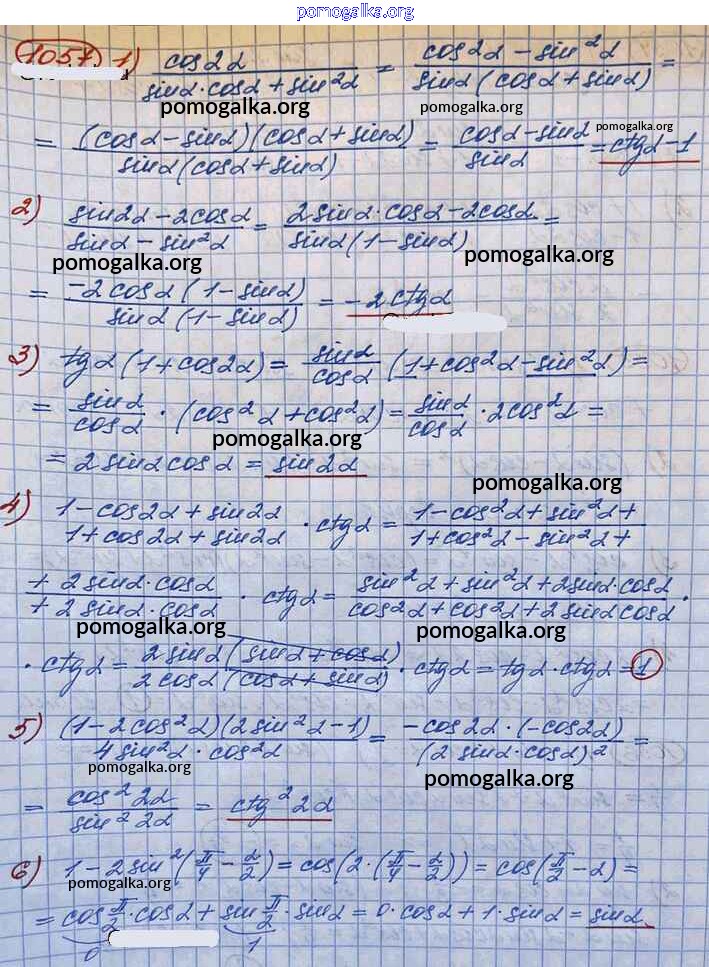 pomogalka.org
1057 1) cos2α / (sinα·cosα + sin²α) = (cos2α − sin²α) / (sinα(cosα + sinα)) =
pomogalka.org pomogalka.org
= (cosα − sinα)(cosα + sinα) / (sinα(cosα + sinα)) = (cosα − sinα) / sinα = ctgα − 1
pomogalka.org
2) (sin2α − 2cosα) / (sinα − sin²α) = (2sinα·cosα − 2cosα) / (sinα(1 − sinα)) =
pomogalka.org pomogalka.org
= −2cosα(1 − sinα) / (sinα(1 − sinα)) = −2ctgα
3) tgα(1 + cos2α) = sinα/cosα (1 + cos²α − sin²α) =
= sinα/cosα · (cos²α + cos²α) = sinα/cosα · 2cos²α =
pomogalka.org
= 2sinαcosα = sin2α
pomogalka.org
4) (1 − cos2α + sin2α) / (1 + cos2α + sin2α) · ctgα = (1 − cos²α + sin²α + / 1 + cos²α − sin²α +
+ 2sinα·cosα) / (+ 2sinα·cosα) · ctgα = (sin²α + sin²α + 2sinα·cosα) / (cos²α + cos²α + 2sinαcosα) ·
pomogalka.org pomogalka.org
· ctgα = 2sinα(sinα + cosα) / (2cosα(cosα + sinα)) · ctgα = tgα · ctgα = 1
5) (1 − 2cos²α)(2sin²α − 1) / (4sin²α · cos²α) = −cos2α · (−cos2α) / (2sinα·cosα)² =
pomogalka.org pomogalka.org
= cos²2α / sin²2α = ctg²2α
6) 1 − 2sin²(π/4 − α/2) = cos(2·(π/4 − α/2)) = cos(π/2 − α) =
pomogalka.org
= cos π/2 · cosα + sin π/2 · sinα = 0·cosα + 1·sinα = sinα
0 1